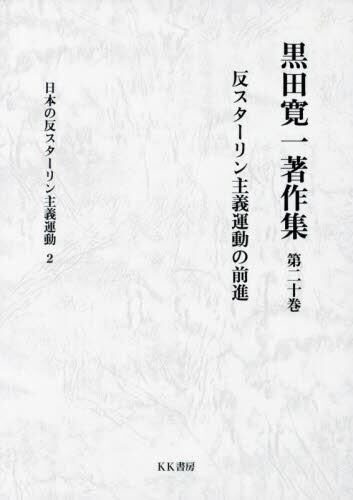 黒田寛一著作集 第二十巻
反スターリン主義運動の前進
日本の反スターリン主義運動 2
KK書房